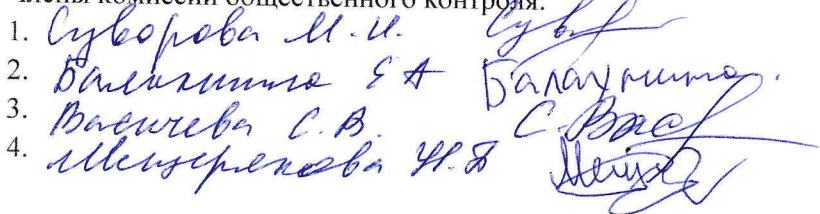 Члены комиссии общественного контроля:
1. Суворова М.И. Сув
2. Балахнина Е А Балахнина.
3. Васичева С.В. С.Вас
4. Мещерякова Н.Б Мещ